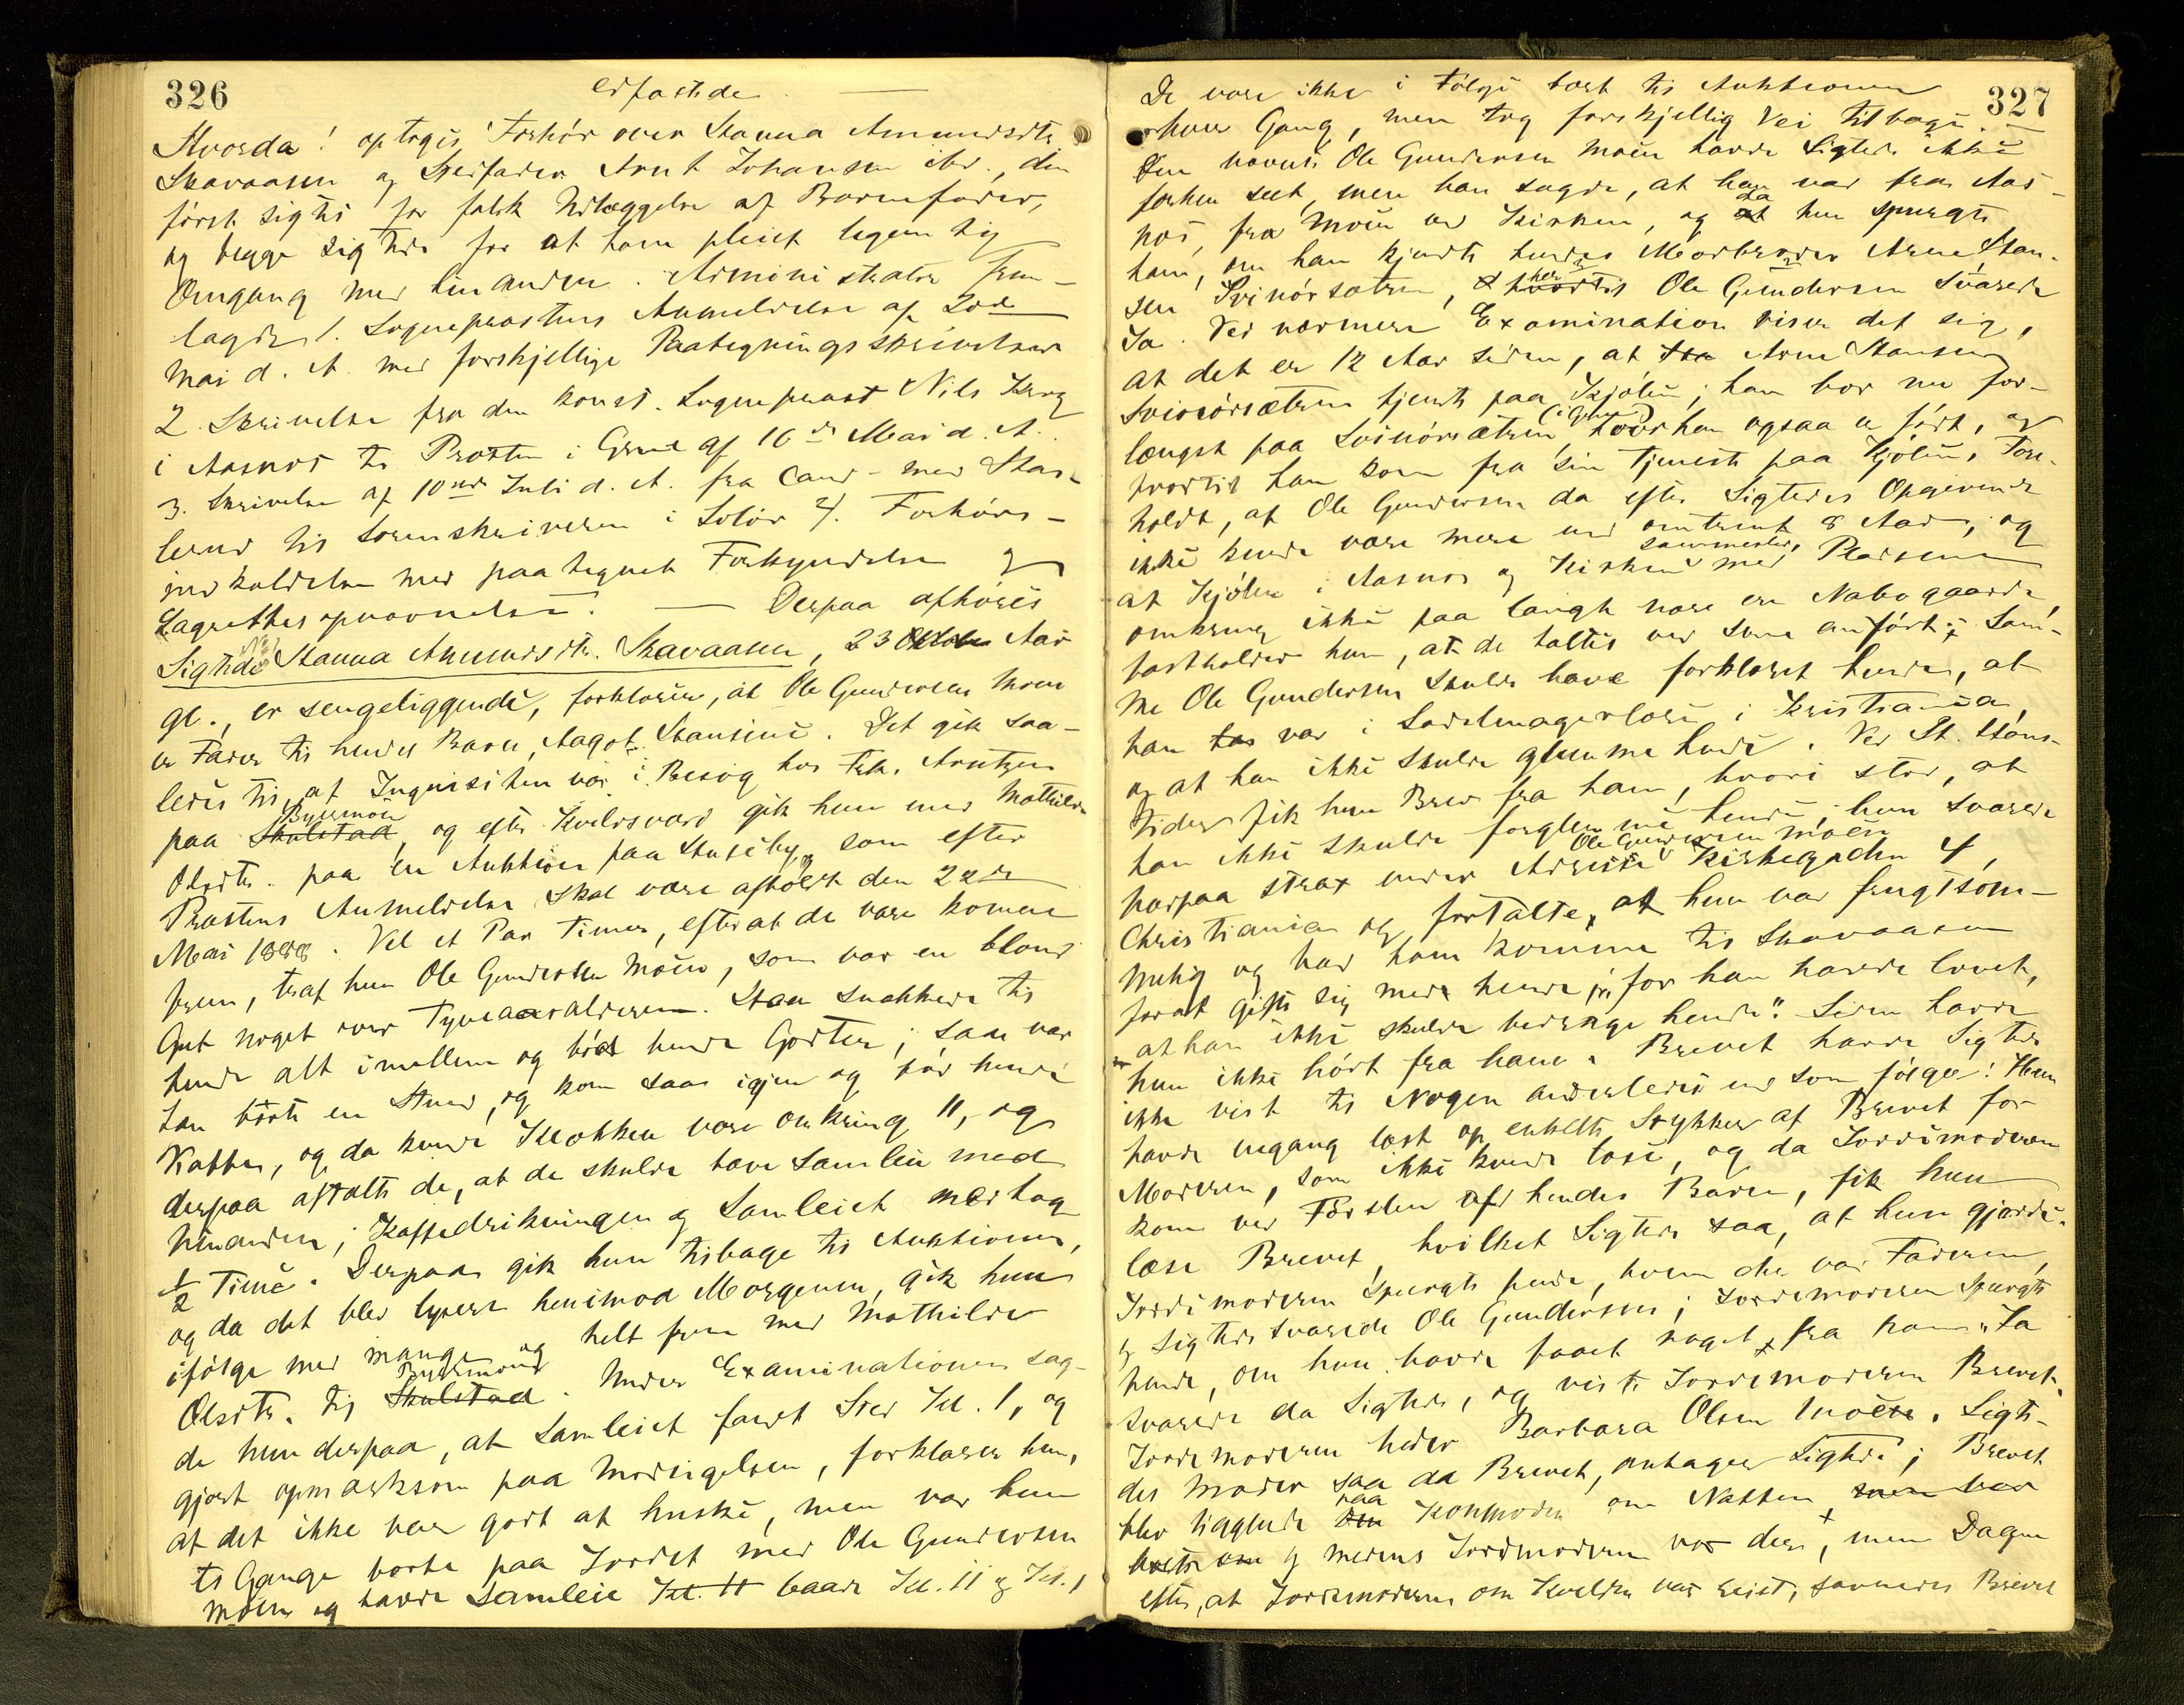 326
edfæstede
Hvorda! optoges Forhör over Hanna Amundsdtr.
Skaraasen og Stedfader Arnt Johansen ibd., den
först sigtet for falsk Udlæggelse af Barnefader,
og begge sigtede for at have pleiet legemlig
Omgang med hinanden. Administrator frem-
lagde 1. Sogneprestens Anmeldelse af 2den
Mai d. A. med forskjellige Paategningsskrivelser
2. Skrivelse fra den konst. Sogneprest Nils Krog
i Aasnes til Provsten i Grue af 16de Mai d. A.
3. Skrivelse af 10nde Juli d. A. fra Cand. med
til Sorenskriveren i Solör 4. Forhörs-
indkaldelse med paategnet Forkyndelse og
Lagrettesopnævnelse. — Derpaa afhöres
Sigtede Hanna Amundsdtr. Skaraasen, 23 Aar
gl., er sengeliggende, forklarer, at Ole Gundersen Moen
er Fader til hendes Barn, Aagot Hansine. Det gik saa-
ledes til, at Inquisiten var i Besög hos Frk. Arntzen
Byermoen
paa Skulstad, og efter Kveldsvard gik hun med Mathilde
Olsdtr. paa en Auktion paa Huseby, som efter
Prestens Anmeldelse skal være afholdt den 22de
Mai 1888. Vel et Par Timer, efterat de vare komne
frem, traf hun Ole Gundersen Moen, som var en blond
Gut noget over Tyveaarsalderen. Han snakkede til
hende alt imellem og böd hende Godter; saa var
han borte en Stund, og kom saa igjen og bad hende
Kaffe, og da kunde Klokken være omkring 11, og
derpaa aftalte de, at de skulde have Samleie med
hinanden; Kaffedrikningen og Samleiet medtog
½ Time. Derpaa gik hun tilbage til Auktionen,
og da det blev lysere henimod Morgenen, gik hun
ifölge med mange og helt frem med Mathilde
Byermoen
Olsdtr. til Skulstad. Under Examinationen sag-
de hun derpaa, at Samleiet fandt Sted Kl. 1, og
gjort opmærksom paa Modsigelsen, forklarer hun,
at det ikke var godt at huske, men var hun
to Gange borte paa Jordet med Ole Gundersen
Moen og havde Samleie Kl. 11 baade Kl. 11 og Kl. 1
327
De vare ikke i Fölge bort til Auktionen
hver Gang, men tog forskjellig Vei tilbage.
Den nævnte Ole Gundersen Moen havde Sigtede ikke
förhen seet, men han sagde, at han var fra Aas-
nes, fra Moen ved Kirken, og da hun spurgte
ham, om han kjendte hendes Morbroder Arne Han-
sen Svenörsætren, hertil Ole Gundersen svarede
Ja. Ved nærmere Examination viser det sig,
at det er 12 Aar siden, at Arne Hansen
Svenörsætren tjente paa Kjölen; han bor nu for-
længst paa Svenörsætren (i Grue) hvor han ogsaa er födt, og
hvortil han kom fra sin Tjeneste paa Kjölen. Fore-
holdt, at Ole Gundersen da efter Sigtedes Opgivende
ikke kunde være mere end omtrent 8 Aar, og
at Kjölen i Aasnes og Kirken sammesteds med Pladsene
omkring ikke paa langt nær er Nabogaarde,
fastholder hun, at de taltes ved som anfört; Sam-
me Ole Gundersen skulde have forklaret hende, at
han var i Sadelmagerlære i Kristiania,
og at han ikke skulde glemme hende. Ved St. Hans-
tider fik hun Brev fra ham, hvori stod, at
han ikke skulde forglemme hende; hun svarede
Ole Gundersen Moen
herpaa strax under Adresse Kirkegaden 4,
Christiania og fortalte, at hun var frugtsom-
melig og bad ham komme til Skaraasen
forat gifte sig med hende, for han havde lovet,
at han ikke skulde bedrage hende". Siden havde
hun ikke hört fra ham. Brevet havde Sigtede
ikke vist til Nogen anderledes end som fölger: Hun
havde engang læst op enkelte Stykker af Brevet for
Moderen, som ikke kunde læse, og da Jordemoderen
kom ved Förslen af hendes Barn, fik hun
læse Brevet, hvilket Sigtede saa, at hun gjorde.
Jordemoderen spurgte hende, hvem der var Faderen,
og Sigtede svarede Ole Gundersen; Jordemoderen spurgte
hende, om hun havde faaet noget fra ham "Ja
svarede da Sigtede, og viste Jordemoderen Brevet.
Jordemoderen heder Barbara Olsen Moen. Sigte-
des Moder saa da Brevet, antager Sigtede; Brevet
paa
blev liggende den Kommoden om Natten, som var
og medens Jordmoderen var der, men Dagen
efter, at Jordemoderen om Kvelden var reist, savnedes Brevet